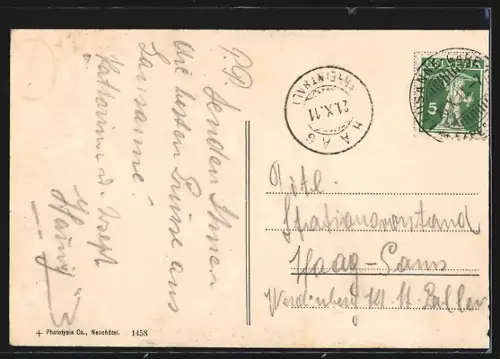 P.P. Senden Ihnen
die besten Grüsse aus
Lausanne.
Katharina u. Josef
HELVETIA
5
HAAG
21.X.11
(RHEINTHAL)
Titl.
Stationsvorstand
Haag-Gams
Werdenberg Kt. St. Gallen
+ Phototypie Co., Neuchâtel. 1458